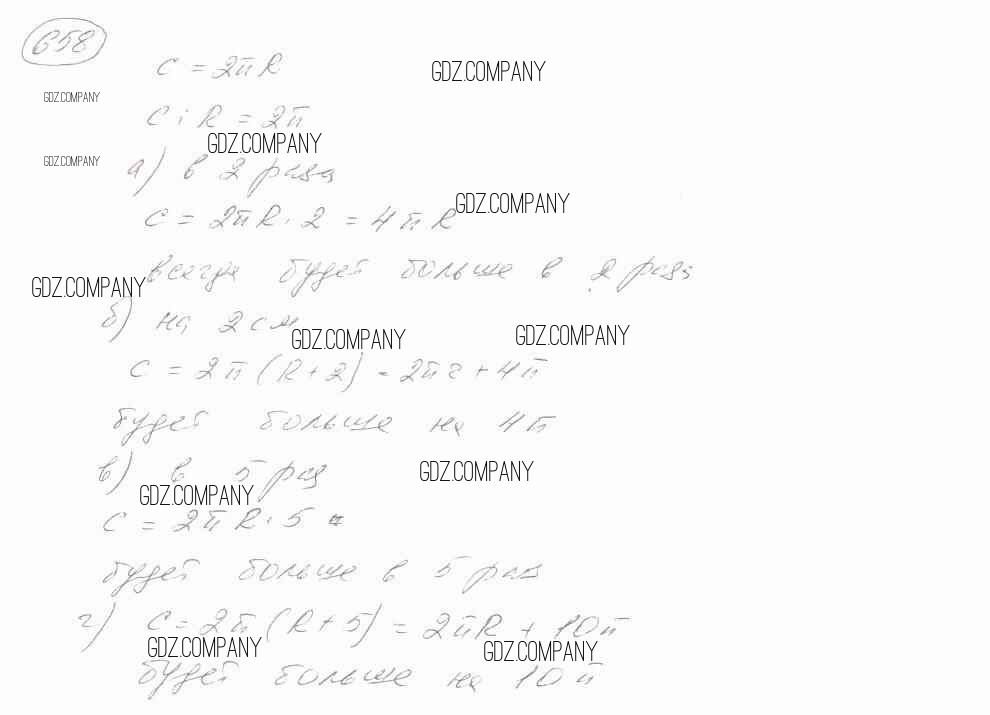 658
C = 2πR
GDZ.COMPANY
GDZ.COMPANY
C : R = 2π
GDZ.COMPANY
GDZ.COMPANY
а) в 2 раза
GDZ.COMPANY
C = 2πR · 2 = 4πR
всегда будет больше в 2 раза
GDZ.COMPANY
б) на 2 см
GDZ.COMPANY
GDZ.COMPANY
C = 2π (R + 2) = 2πr + 4π
будет больше на 4π
в) в 5 раз
GDZ.COMPANY
GDZ.COMPANY
C = 2πR · 5
будет больше в 5 раз
г) C = 2π (R + 5) = 2πR + 10π
GDZ.COMPANY
GDZ.COMPANY
будет больше на 10π